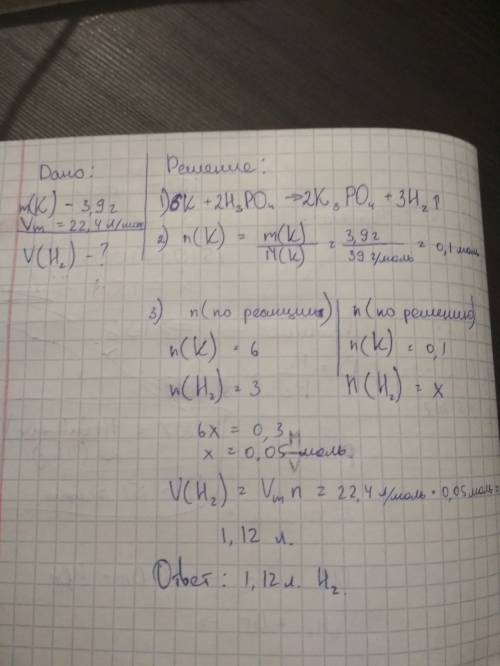 Дано:
m(K) - 3,9 г
Vm = 22,4 л/моль
V(H₂) - ?
Решение:
1) 6K + 2H₃PO₄ → 2K₃PO₄ + 3H₂↑
2) n(K) = m(K)/M(K) = 3,9 г/39 г/моль = 0,1 моль
3) n (по реакции) n (по решению)
n(K) = 6 n(K) = 0,1
n(H₂) = 3 n(H₂) = x
6x = 0,3
x = 0,05 моль.
V(H₂) = Vm n = 22,4 л/моль · 0,05 моль =
1,12 л.
Ответ: 1,12 л. H₂.